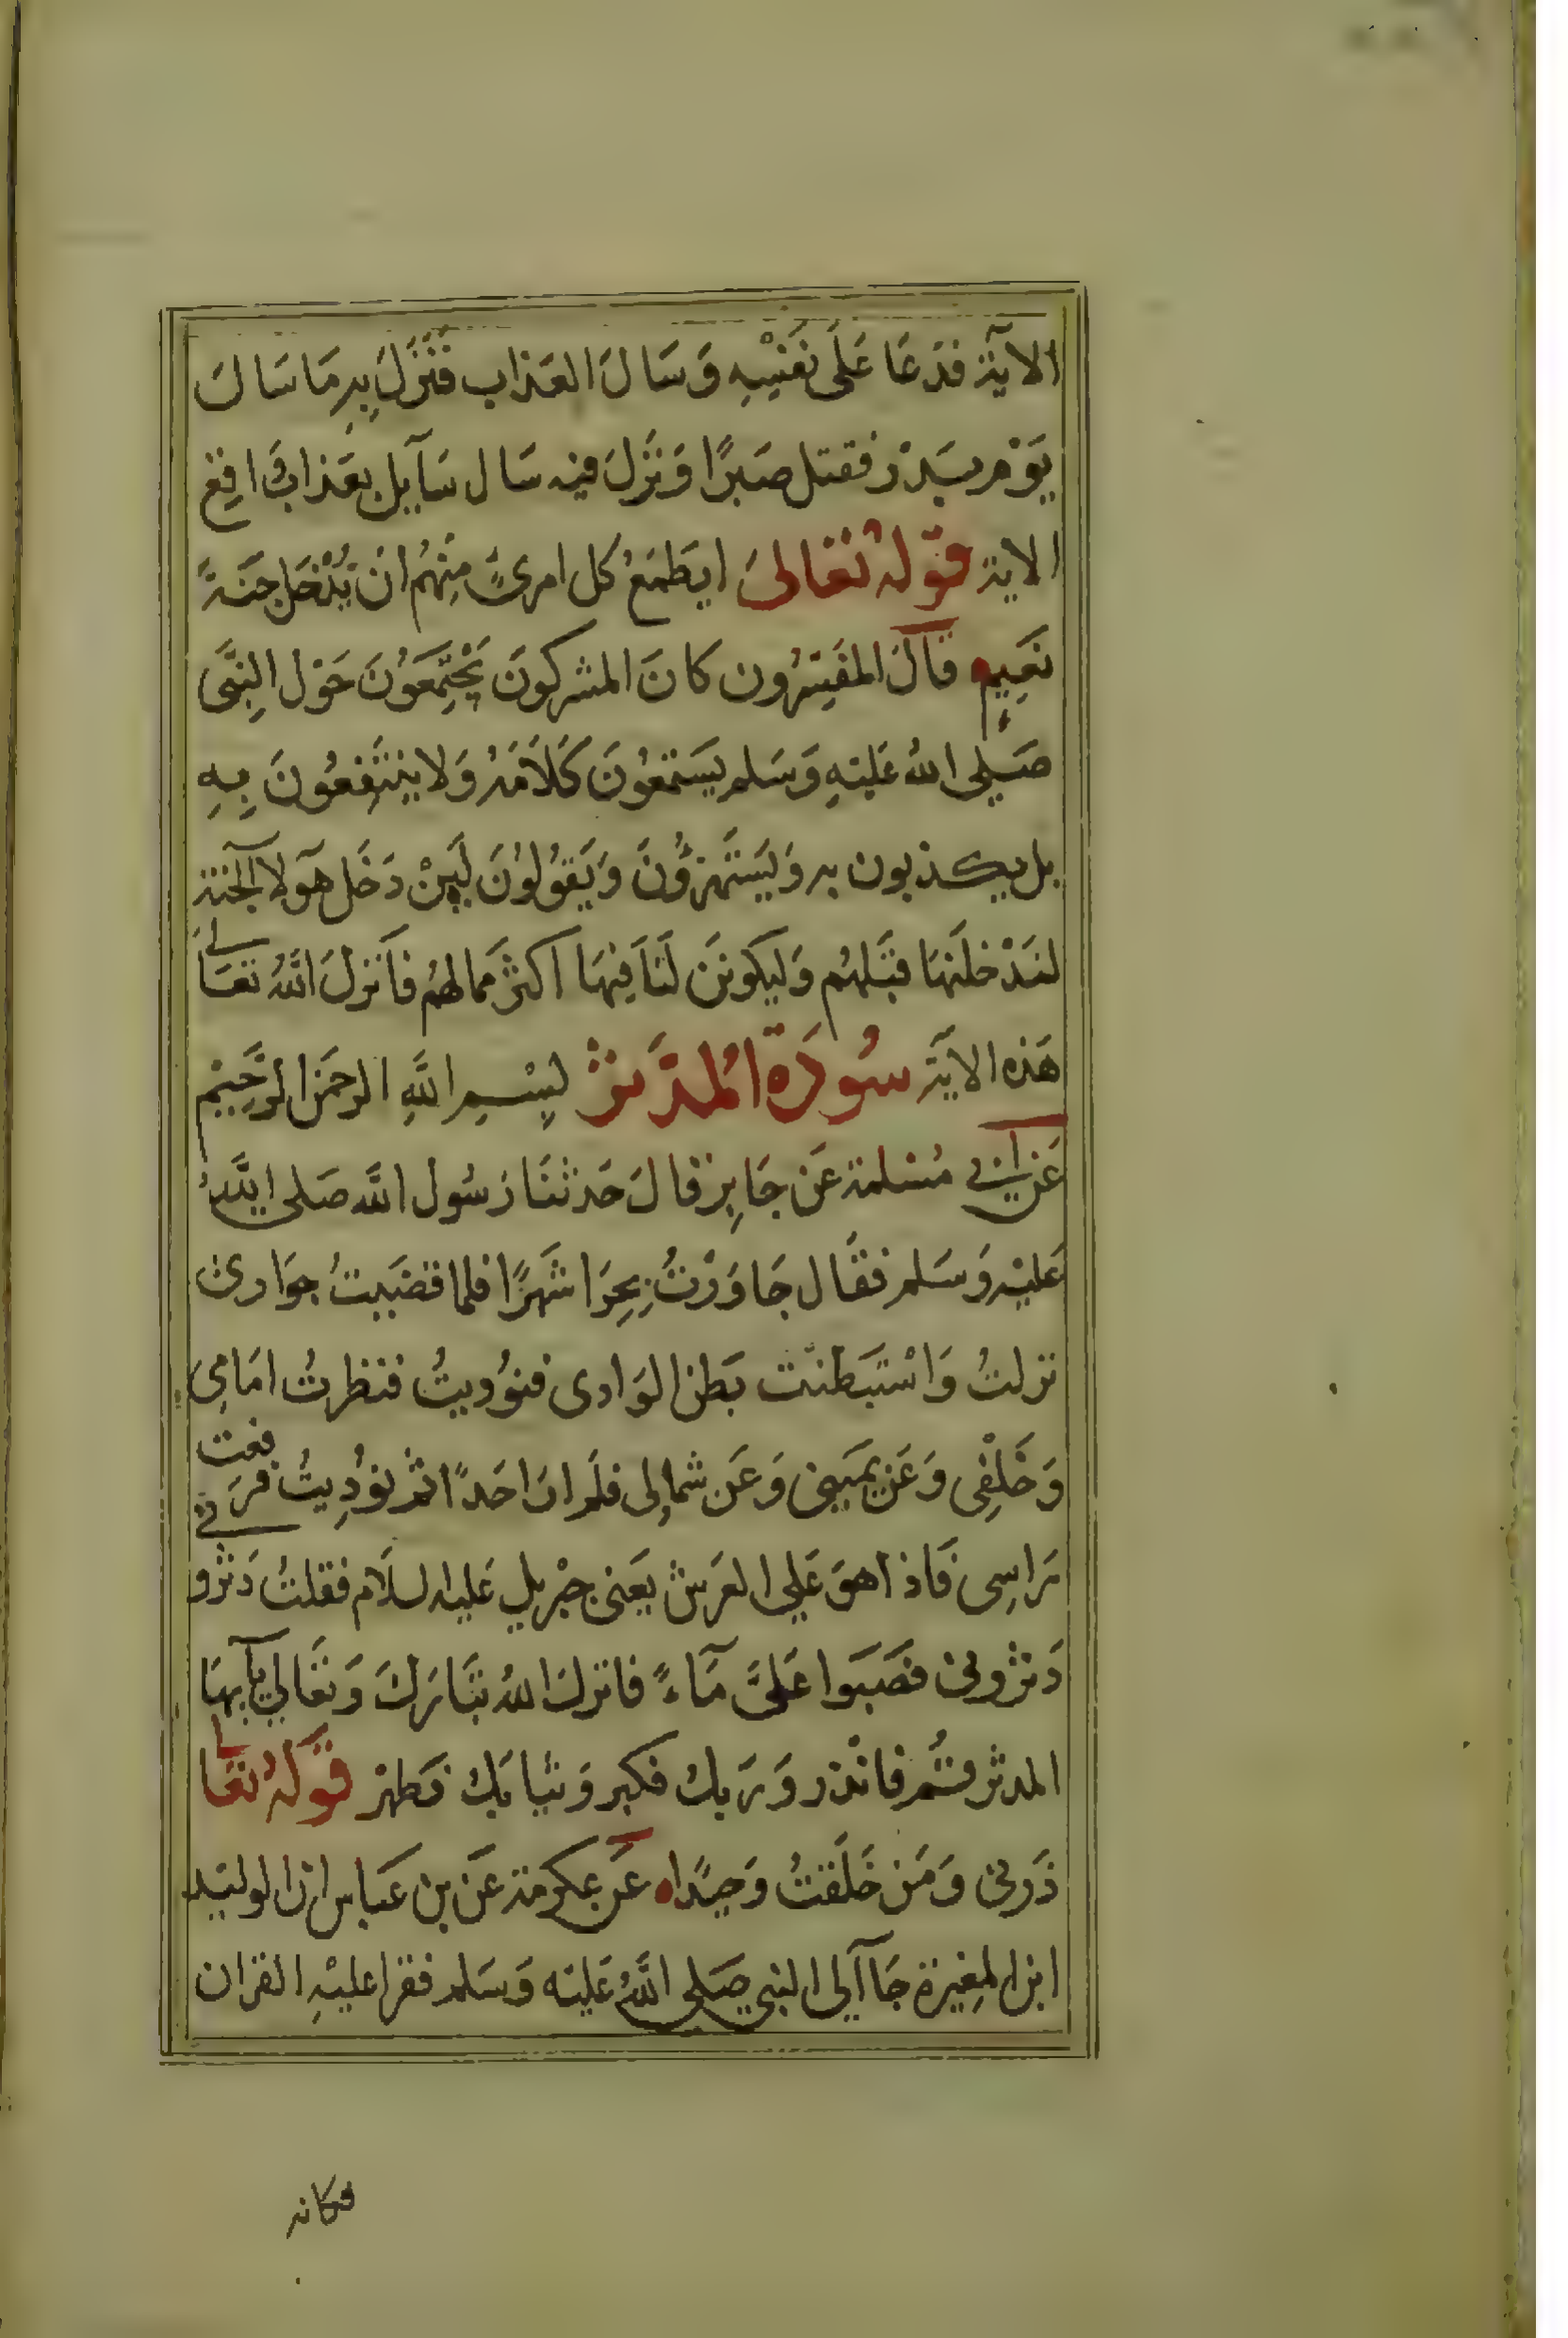 الاية فدعَا عَلَى نفسِهِ وَسَالَ العَذاب فنَزَلَ بِهِ مَا سَالَ
يَوْم بَدْر فقتل صَبرًا وَنَزَلَ فيه سَال سَآيل بعَذاب وَاقِع
الاية قوله تعَالىَ ايَطمَعُ كل امرئٍ مِنْهُم ان يُدْخَل جَنة
نَعِيمٍ قالَ المفَسِّرُون كانَ المشركونَ يَجْتمِعَوُنَ حَوْل النِبَّى
صَلى اللهُ عَليْهِ وَسَلم يسَتمعُونَ كَلَامَهُ وَلا ينتَفِعُونَ بِهِ
بل يكذبون به وَيَستَهزؤُنَ وَيَقوُلوُنَ لَيِنْ دَخَل هَوَلآ الجَنة
لنَدْخلَنهَا قَبَلهُم وَليَكوننَ لَنَا فِيهَا اكثرَ مما لهُم فاَنزلَ اللهُ تعَالى
هَذه الاَيَة سُورَة المُدَّثرْ بِسْمِ اللَّهِ الرحمَن الرَّحِيْم
عَن ابى سَلمة عَن جَابِر قالَ حَدثنَا رَسُول اللَّه صَلى اللَّهُ
عَليْه وَسَلم فقَال جَاوَرْتُ بِحِرَا شَهرًا فلما قضَيتُ جوَارى
نزلتُ وَاسْتبَطنت بَطن الوَادى فنوُديتُ فنظرتُ امَامِى
وَخَلْفِى وَعَن يمَينى وَعَن شمالِى فلَم ارَ احَدًا ثم نوُدِيتُ فرَفعت
رَاسِى فَاذا هوَ عَلى العَرش يَعَنى جبْريل عَليه السلَام فقلتُ دَثرونى
دَثرونى فصَبوَا عَلىَّ مَآءً فانزلَ اللهُ تبَارَكَ وَتعَالى يَآ ايهَا
المدثر قُم فانْذر وَرَبك فكبر وَثيَابَك فطهرْ قَوْلهُ تعَالى
ذَرنى وَمَن خَلَقتُ وَحِيدًاه عَن عِكرمَة عَن بن عَبَاس ان الوليَد
ابن المغِيرَة جَآ الى النبى صَلى اللَّهُ عَليْه وَسَلم فقرا عليْهِ القران
فكانه